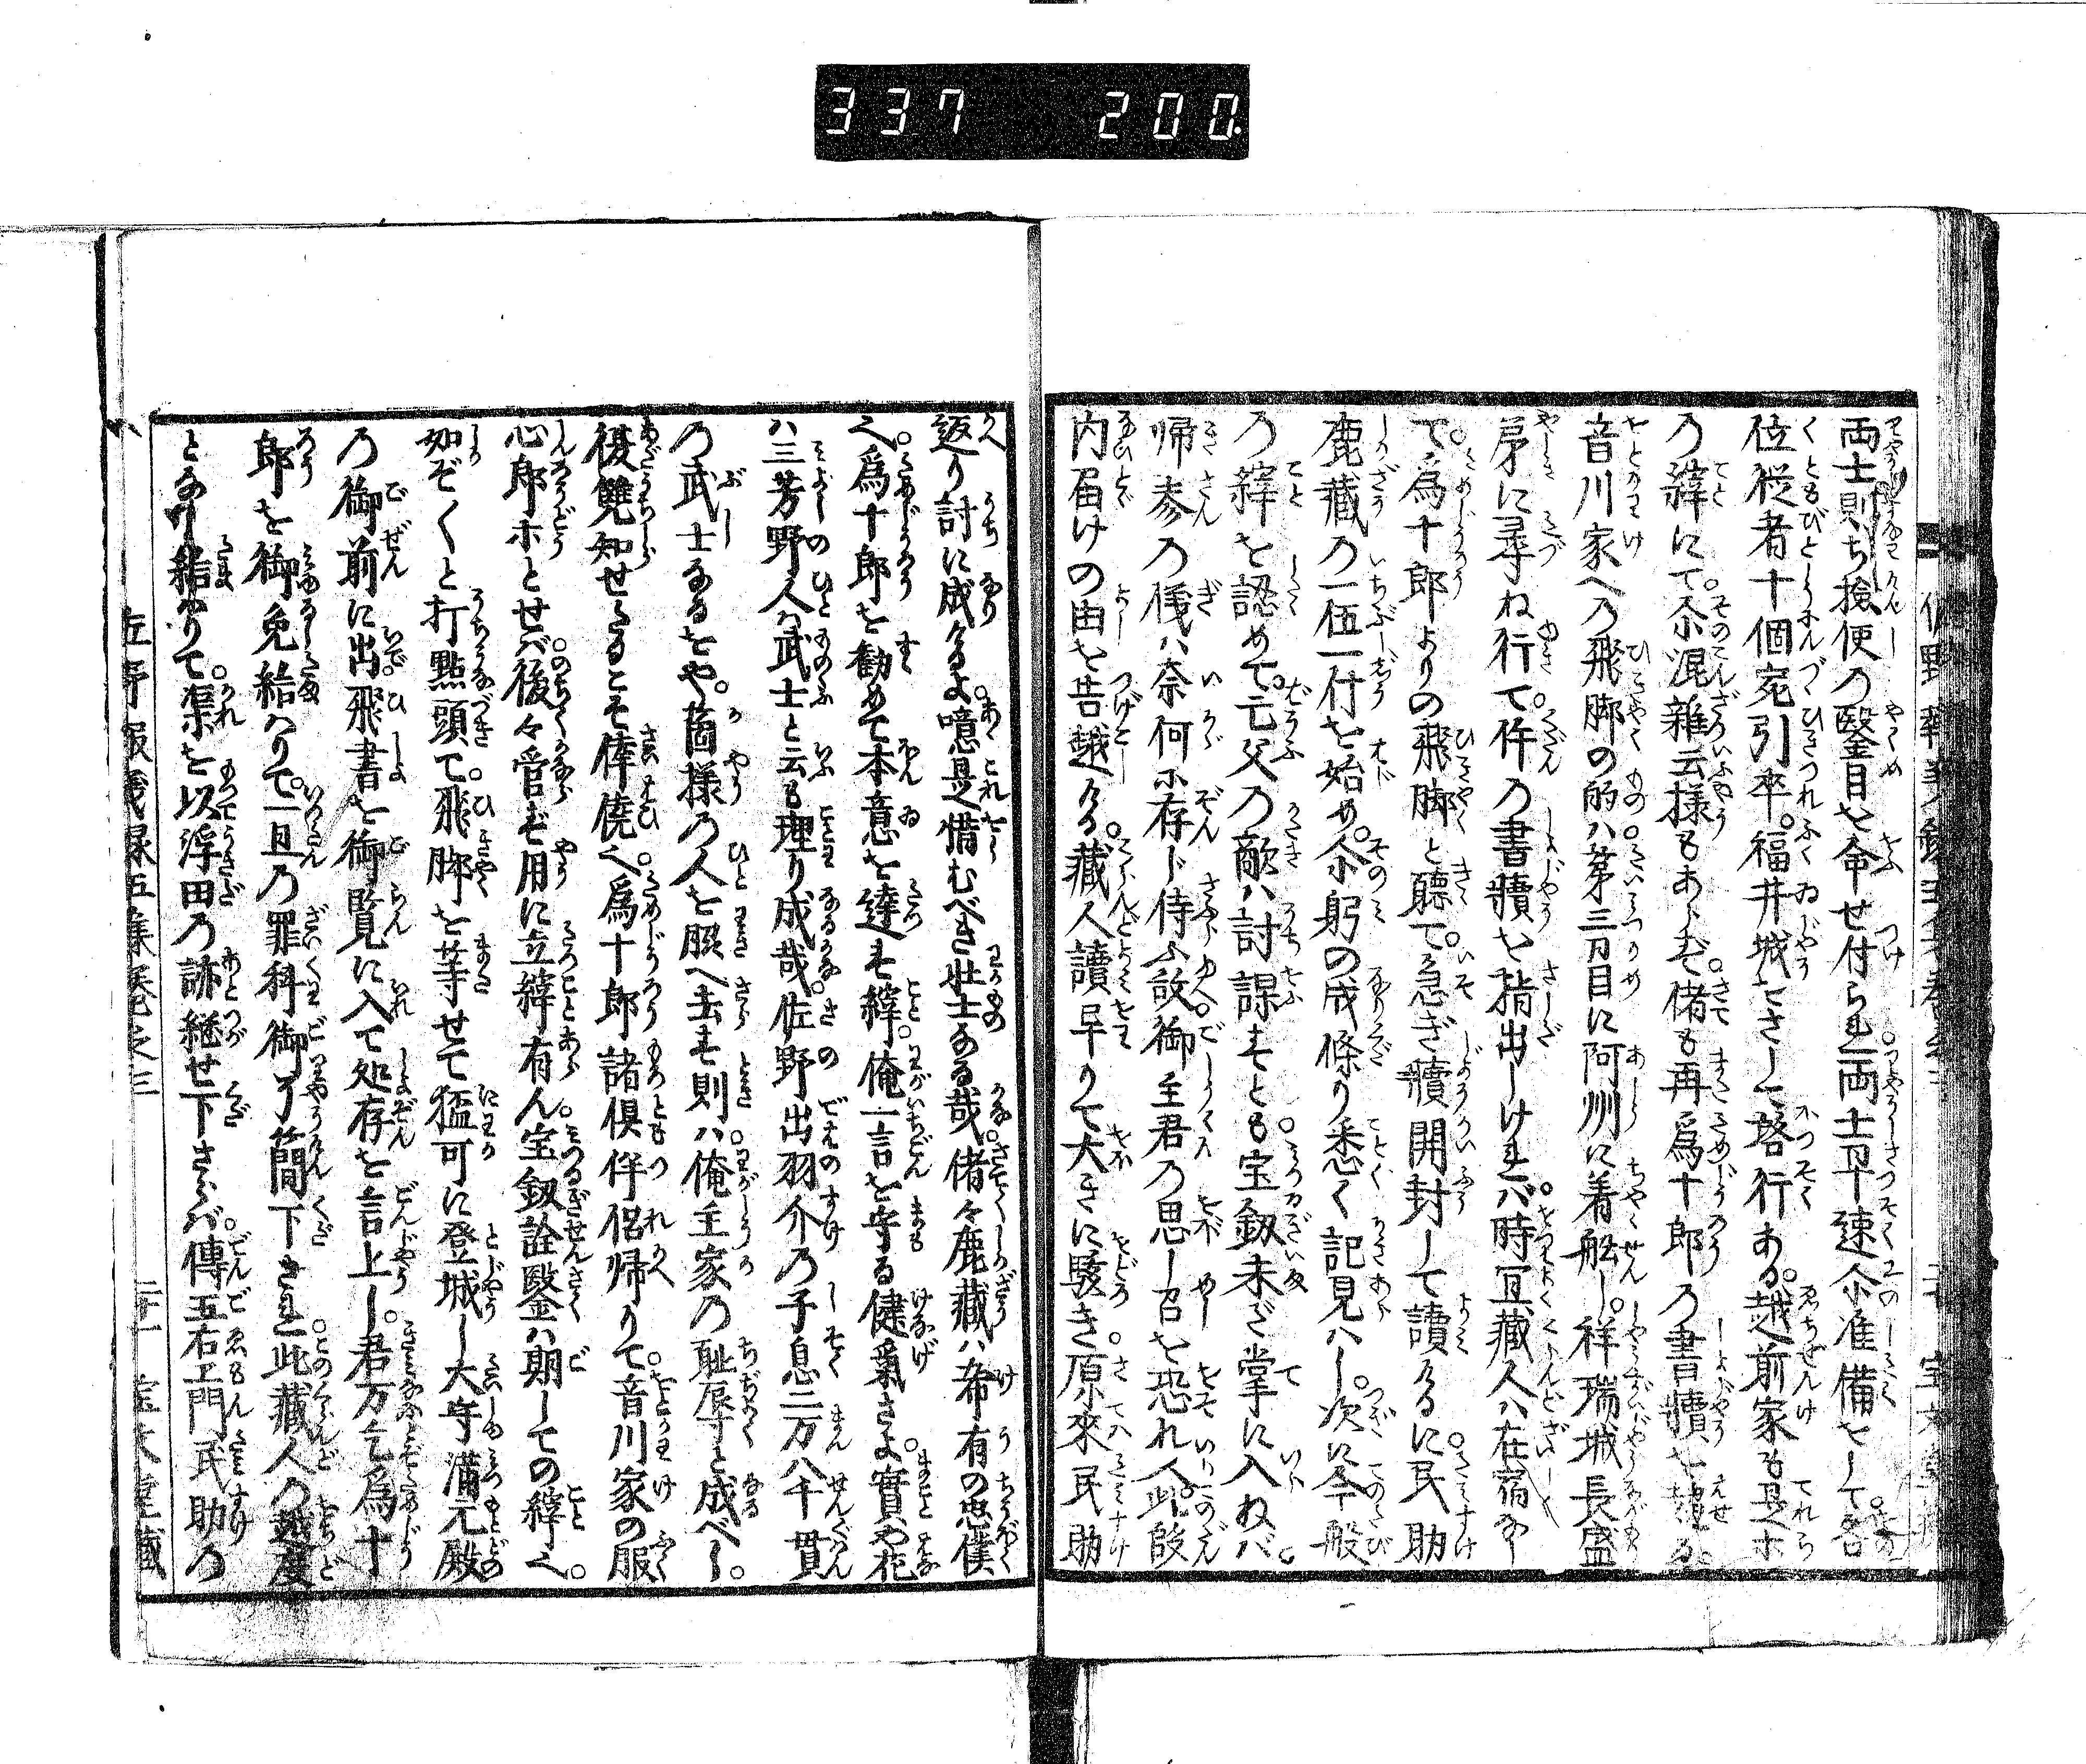 337 200
両士則ち撿使の鑒目を命せ付らる両士早速尒准備をして各
位從者十個宛引卒。福井城をさして発行ある。越前家も是ホ
の縡にて。尒混雜云様もあらず。偖も再爲十郎の書牘を
音川家への飛脚の的ハ第三刀目に阿州に着舩し。祥瑞城長盛
茅に尋ね行て。件の書牘を指出しけれバ。時冝藏人ハ在宿なり
て。爲十郎よりの飛脚と聽て。急ぎ牘開封して讀けるに。民助
鹿藏の一伍一什を始め。尒躬の成條り悉く記見ハし。次に今般
の縡を認めて。亡父の敵ハ討課すとも。宝釼未ダ掌に入ねバ。
帰参の儀ハ奈何尒存じ侍ふ故。御主君の思し召を恐れ入。此段
内届けの由を告越ける。藏人讀早りて大きに駭き。原來民助
返り討に成けるよ。噫是惜むべき壮士なる哉。偖々鹿藏ハ希有の忠僕
へ。爲十郎を勧めて本意を達す縡。俺一言を守る健氣さよ。實や花
ハ三芳野人ハ武士と云も理り成哉。佐野出羽介の子息二万八千貫
の武士なるをや。箇様の人を脵へ去す則ハ。俺主家の耻辱と成べし。
復讐知せることそ倖僥へ。爲十郎諸倶伴侶帰りて。音川家の服
心郎ホとせバ。後々官ず用に立縡有ん。宝釼詮鑒ハ期しての縡へ。
如ぞくと打點頭て。飛脚を等せて猛可に登城し大守満元殿
の御前に出。飛書を御覧に入て処存を言上し。君万乞爲十
郎を御免給ハりて。一旦の罪科御了簡下されバ。此藏人の越度
となり給ハりて。渠を以浮田の跡継せ下さらバ。傳五右エ門民助の
佐野報義録五集巻之三 二十一 宝文堂藏